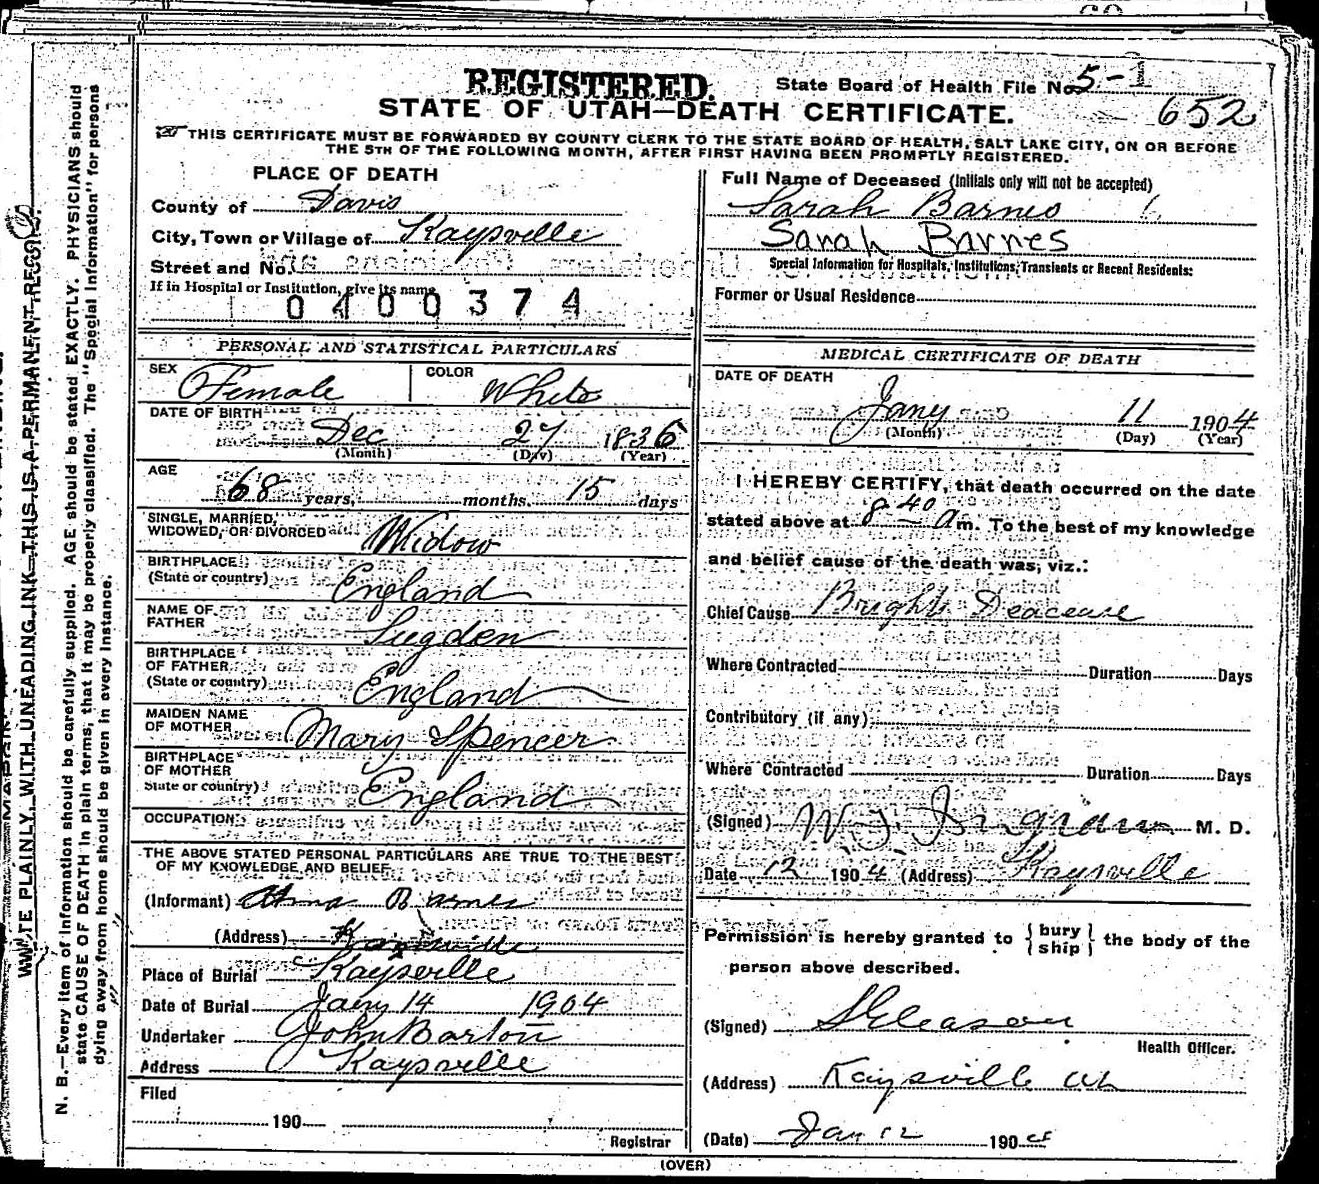 REGISTERED.
State Board of Health File No. 5-1
STATE OF UTAH—DEATH CERTIFICATE.
652
THIS CERTIFICATE MUST BE FORWARDED BY COUNTY CLERK TO THE STATE BOARD OF HEALTH, SALT LAKE CITY, ON OR BEFORE
THE 5TH OF THE FOLLOWING MONTH, AFTER FIRST HAVING BEEN PROMPTLY REGISTERED.
PLACE OF DEATH
County of Davis
City, Town or Village of Kaysville
Street and No.
If in Hospital or Institution, give its name
0400374
Full Name of Deceased (Initials only will not be accepted)
Sarah Barnes
Sarah Barnes
Special Information for Hospitals, Institutions, Transients or Recent Residents:
Former or Usual Residence
PERSONAL AND STATISTICAL PARTICULARS
SEX Female COLOR White
DATE OF BIRTH Dec 27 1836
(Month) (Day) (Year)
AGE 68 years, months. 15 days
SINGLE, MARRIED,
WIDOWED, OR DIVORCED Widow
BIRTHPLACE
(State or country) England
NAME OF
FATHER Sugden
BIRTHPLACE
OF FATHER
(State or country) England
MAIDEN NAME
OF MOTHER Mary Spencer
BIRTHPLACE
OF MOTHER
State or country) England
OCCUPATION
THE ABOVE STATED PERSONAL PARTICULARS ARE TRUE TO THE BEST
OF MY KNOWLEDGE AND BELIEF.
(Informant) Barnes
(Address) Kaysville
Place of Burial Kaysville
Date of Burial Jany 14 1904
Undertaker John Barton
Address Kaysville
Filed
190
Registrar
MEDICAL CERTIFICATE OF DEATH
DATE OF DEATH
Jany 11 1904
(Month) (Day) (Year)
I HEREBY CERTIFY, that death occurred on the date
stated above at 8 40 a m. To the best of my knowledge
and belief cause of the death was, viz.:
Chief Cause Brights Deacease
Where Contracted Duration Days
Contributory (if any)
Where Contracted Duration Days
(Signed) W. J. Ingram M. D.
Date 12 1904 (Address) Kaysville
Permission is hereby granted to {bury ship} the body of the
person above described.
(Signed) S Gleason
Health Officer.
(Address) Kaysville
(Date) Jan 12 1904
(OVER)
WRITE PLAINLY WITH UNFADING INK—THIS IS A PERMANENT RECORD.
N. B.—Every item of Information should be carefully supplied. AGE should be stated EXACTLY. PHYSICIANS should
state CAUSE OF DEATH in plain terms, that it may be properly classified. The "Special Information" for persons
dying away from home should be given in every instance.